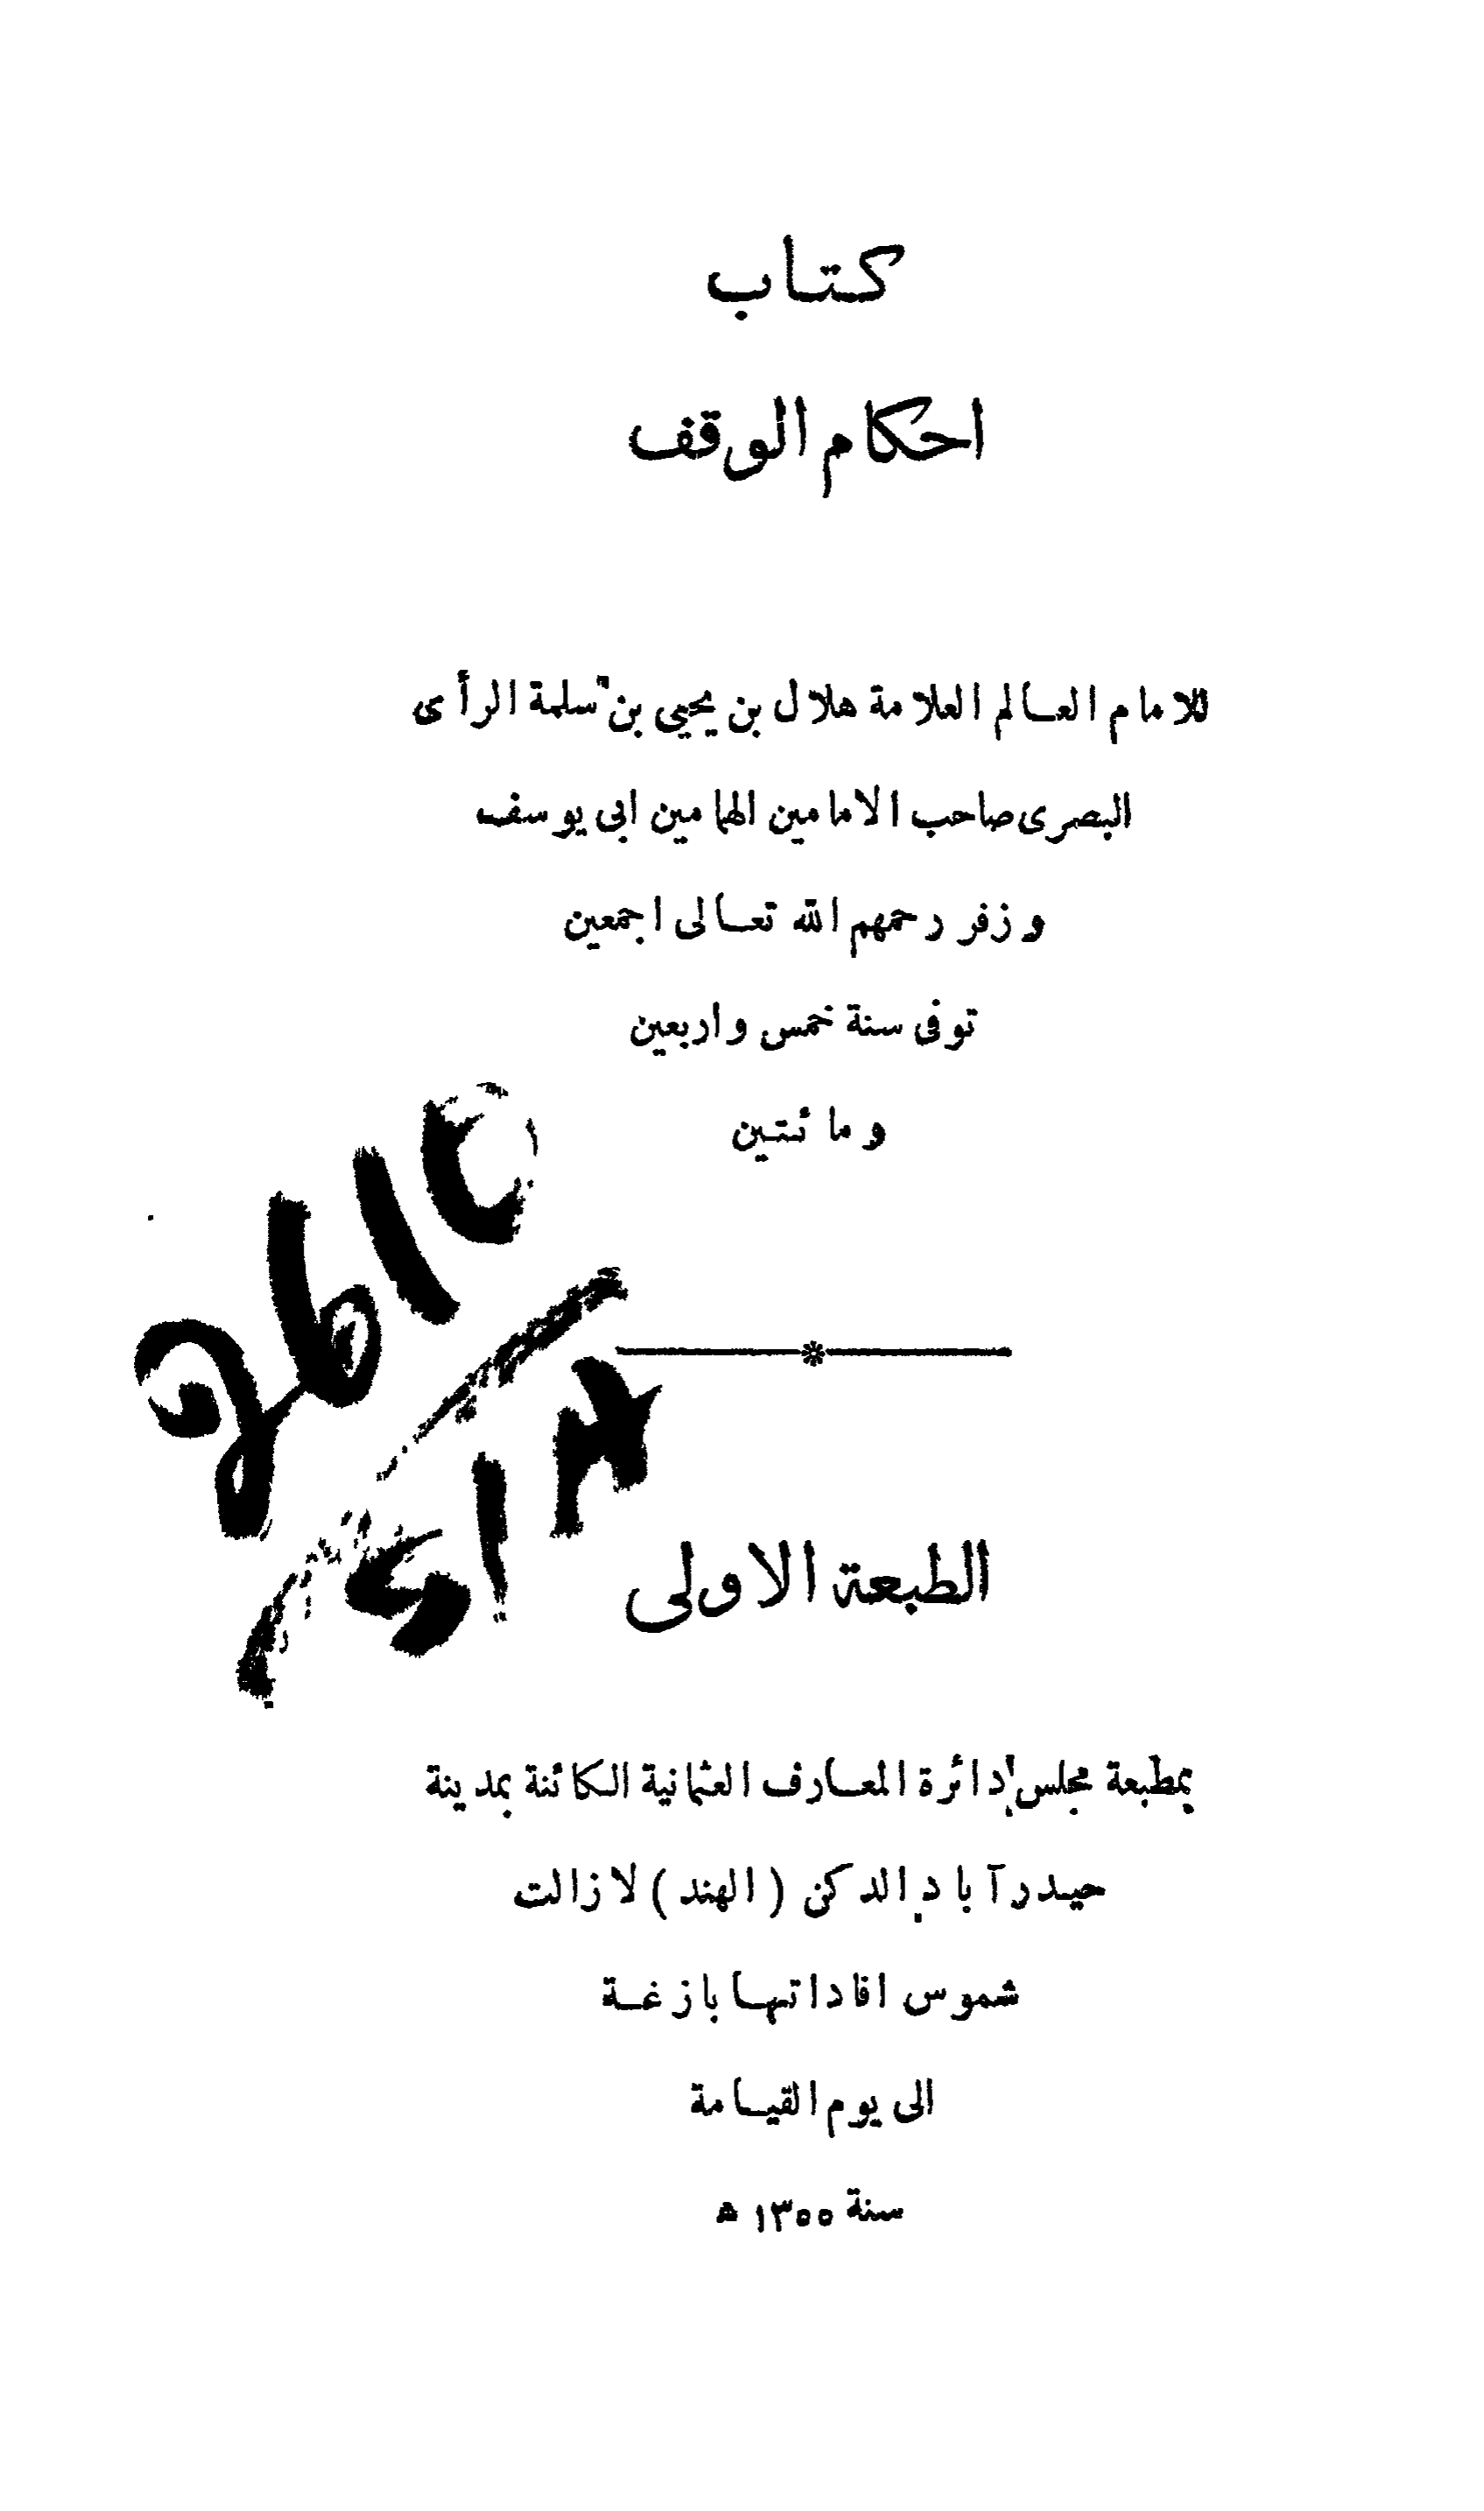 كتاب
احكام الوقف
للامام العالم العلامة هلال بن يحيى بن سلمة الرأى
البصرى صاحب الامامين الهمامين ابى يوسف
وزفر رحمهم الله تعالى اجمعين
توفى سنة خمس واربعين
ومائتين
الطبعة الاولى
بمطبعة مجلس دائرة المعارف العثمانية الكائنة بمدينة
حيدرآباد الدكن (الهند) لازالت
شموس افاداتها بازغة
الى يوم القيامة
سنة ١٣٥٥ ه